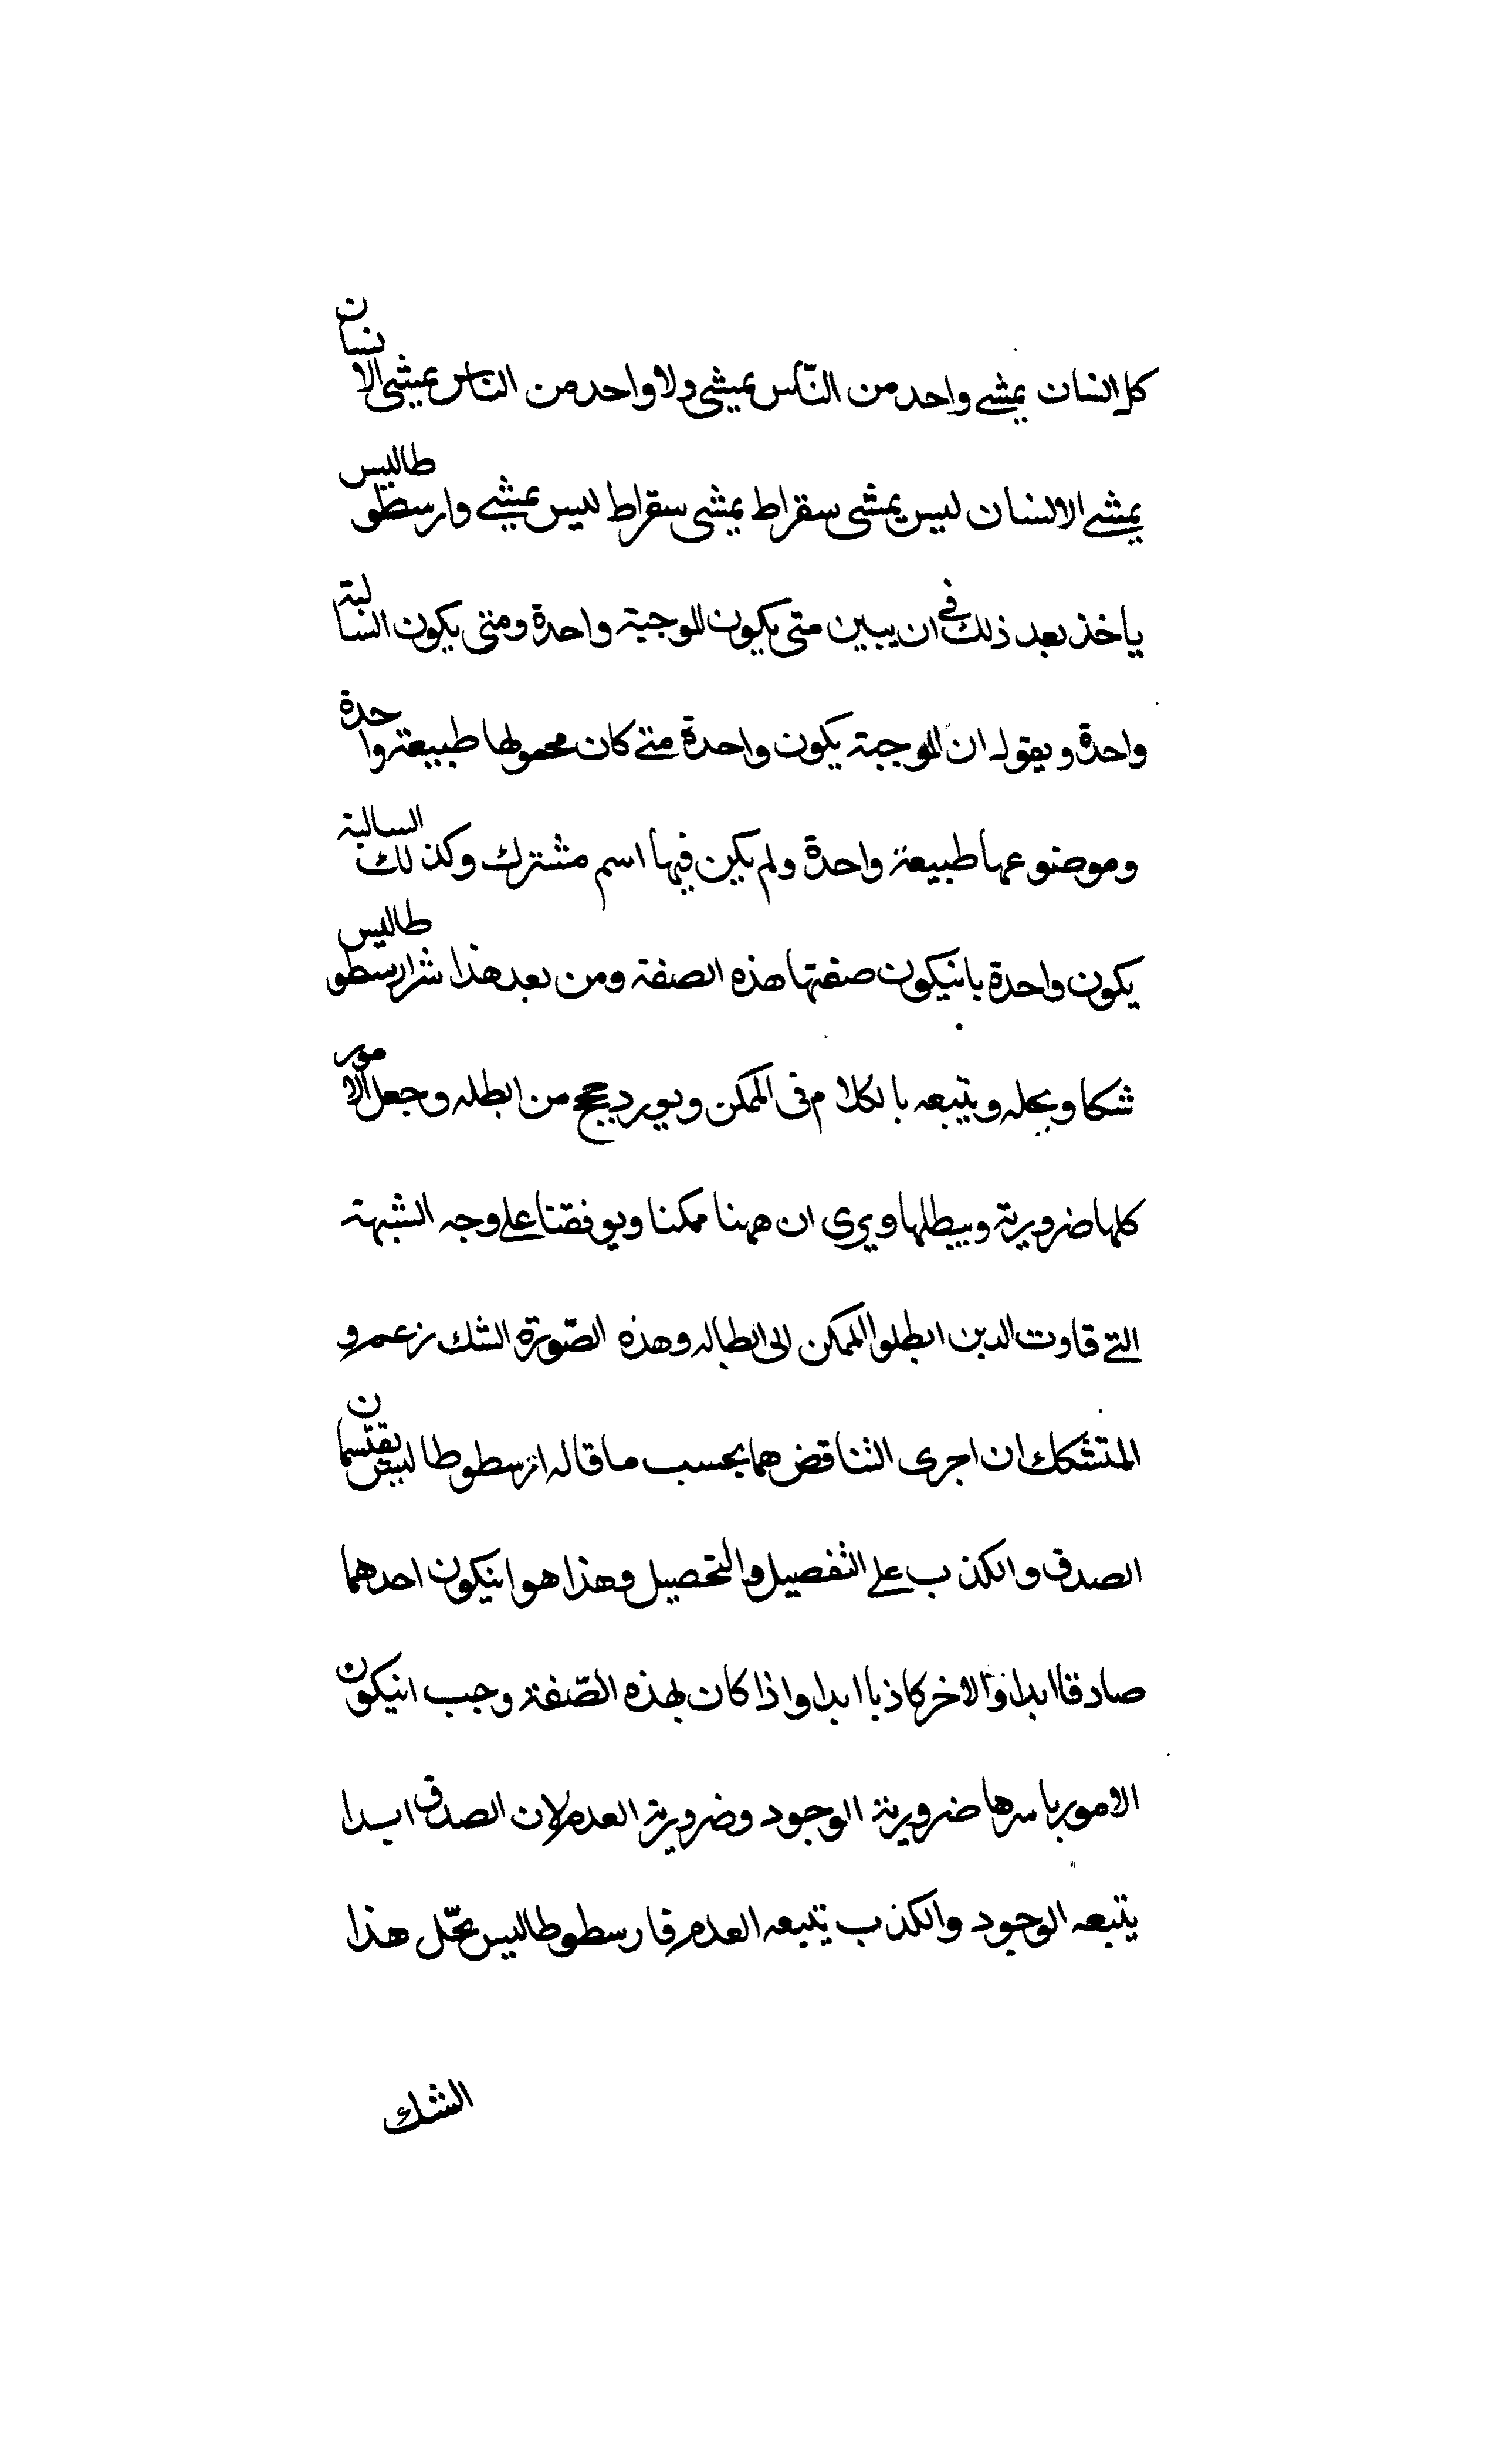 كل انسان يمشي واحد من النّاس يمشي ولا واحد من الناس يمشي الانسان
يمشي الانسان ليس يمشي سقراط يمشي سقراط ليس يمشي وارسطوطاليس
ياخذ بعد ذلك في ان يبين متى يكون الموجبة واحدة ومتى يكون السالبة
واحدة ويقول ان الموجبة يكون واحدة متى كان محمولها طبيعة واحدة
وموضوعها طبيعة واحدة ولم يكن فيها اسم مشترك وكذلك السالبة
يكون واحدة بانيكون صفتها هذه الصفة ومن بعد هذا ارسطوطاليس
شكا ويحله ويتبعه بالكلام في الممكن ويورد حجج من ابطله وجعل الامور
كلها ضرورية ويبطلها ويرى ان ههنا ممكنا ويوفقنا على وجه الشبهة
التي قاوت الدين ابطلوا الممكن الى ابطاله وهذه الصّورة الشك زعم و
المتشكك ان اجرى التناقض هما بحسب ما قاله ارسطوطاليس يقتسمان
الصدق والكذب على التفصيل والتحصيل وهذا هو انيكون احدهما
صادقا ابدا والاخر كاذبا ابدا واذا كان بهذه الصّفة وجب انيكون
الامور باسرها ضرورية الوجود وضرورية العدم لان الصدق ابدا
يتبعه الوجود والكذب يتبعه العدم فارسطوطاليس يحّل هذا
الشك